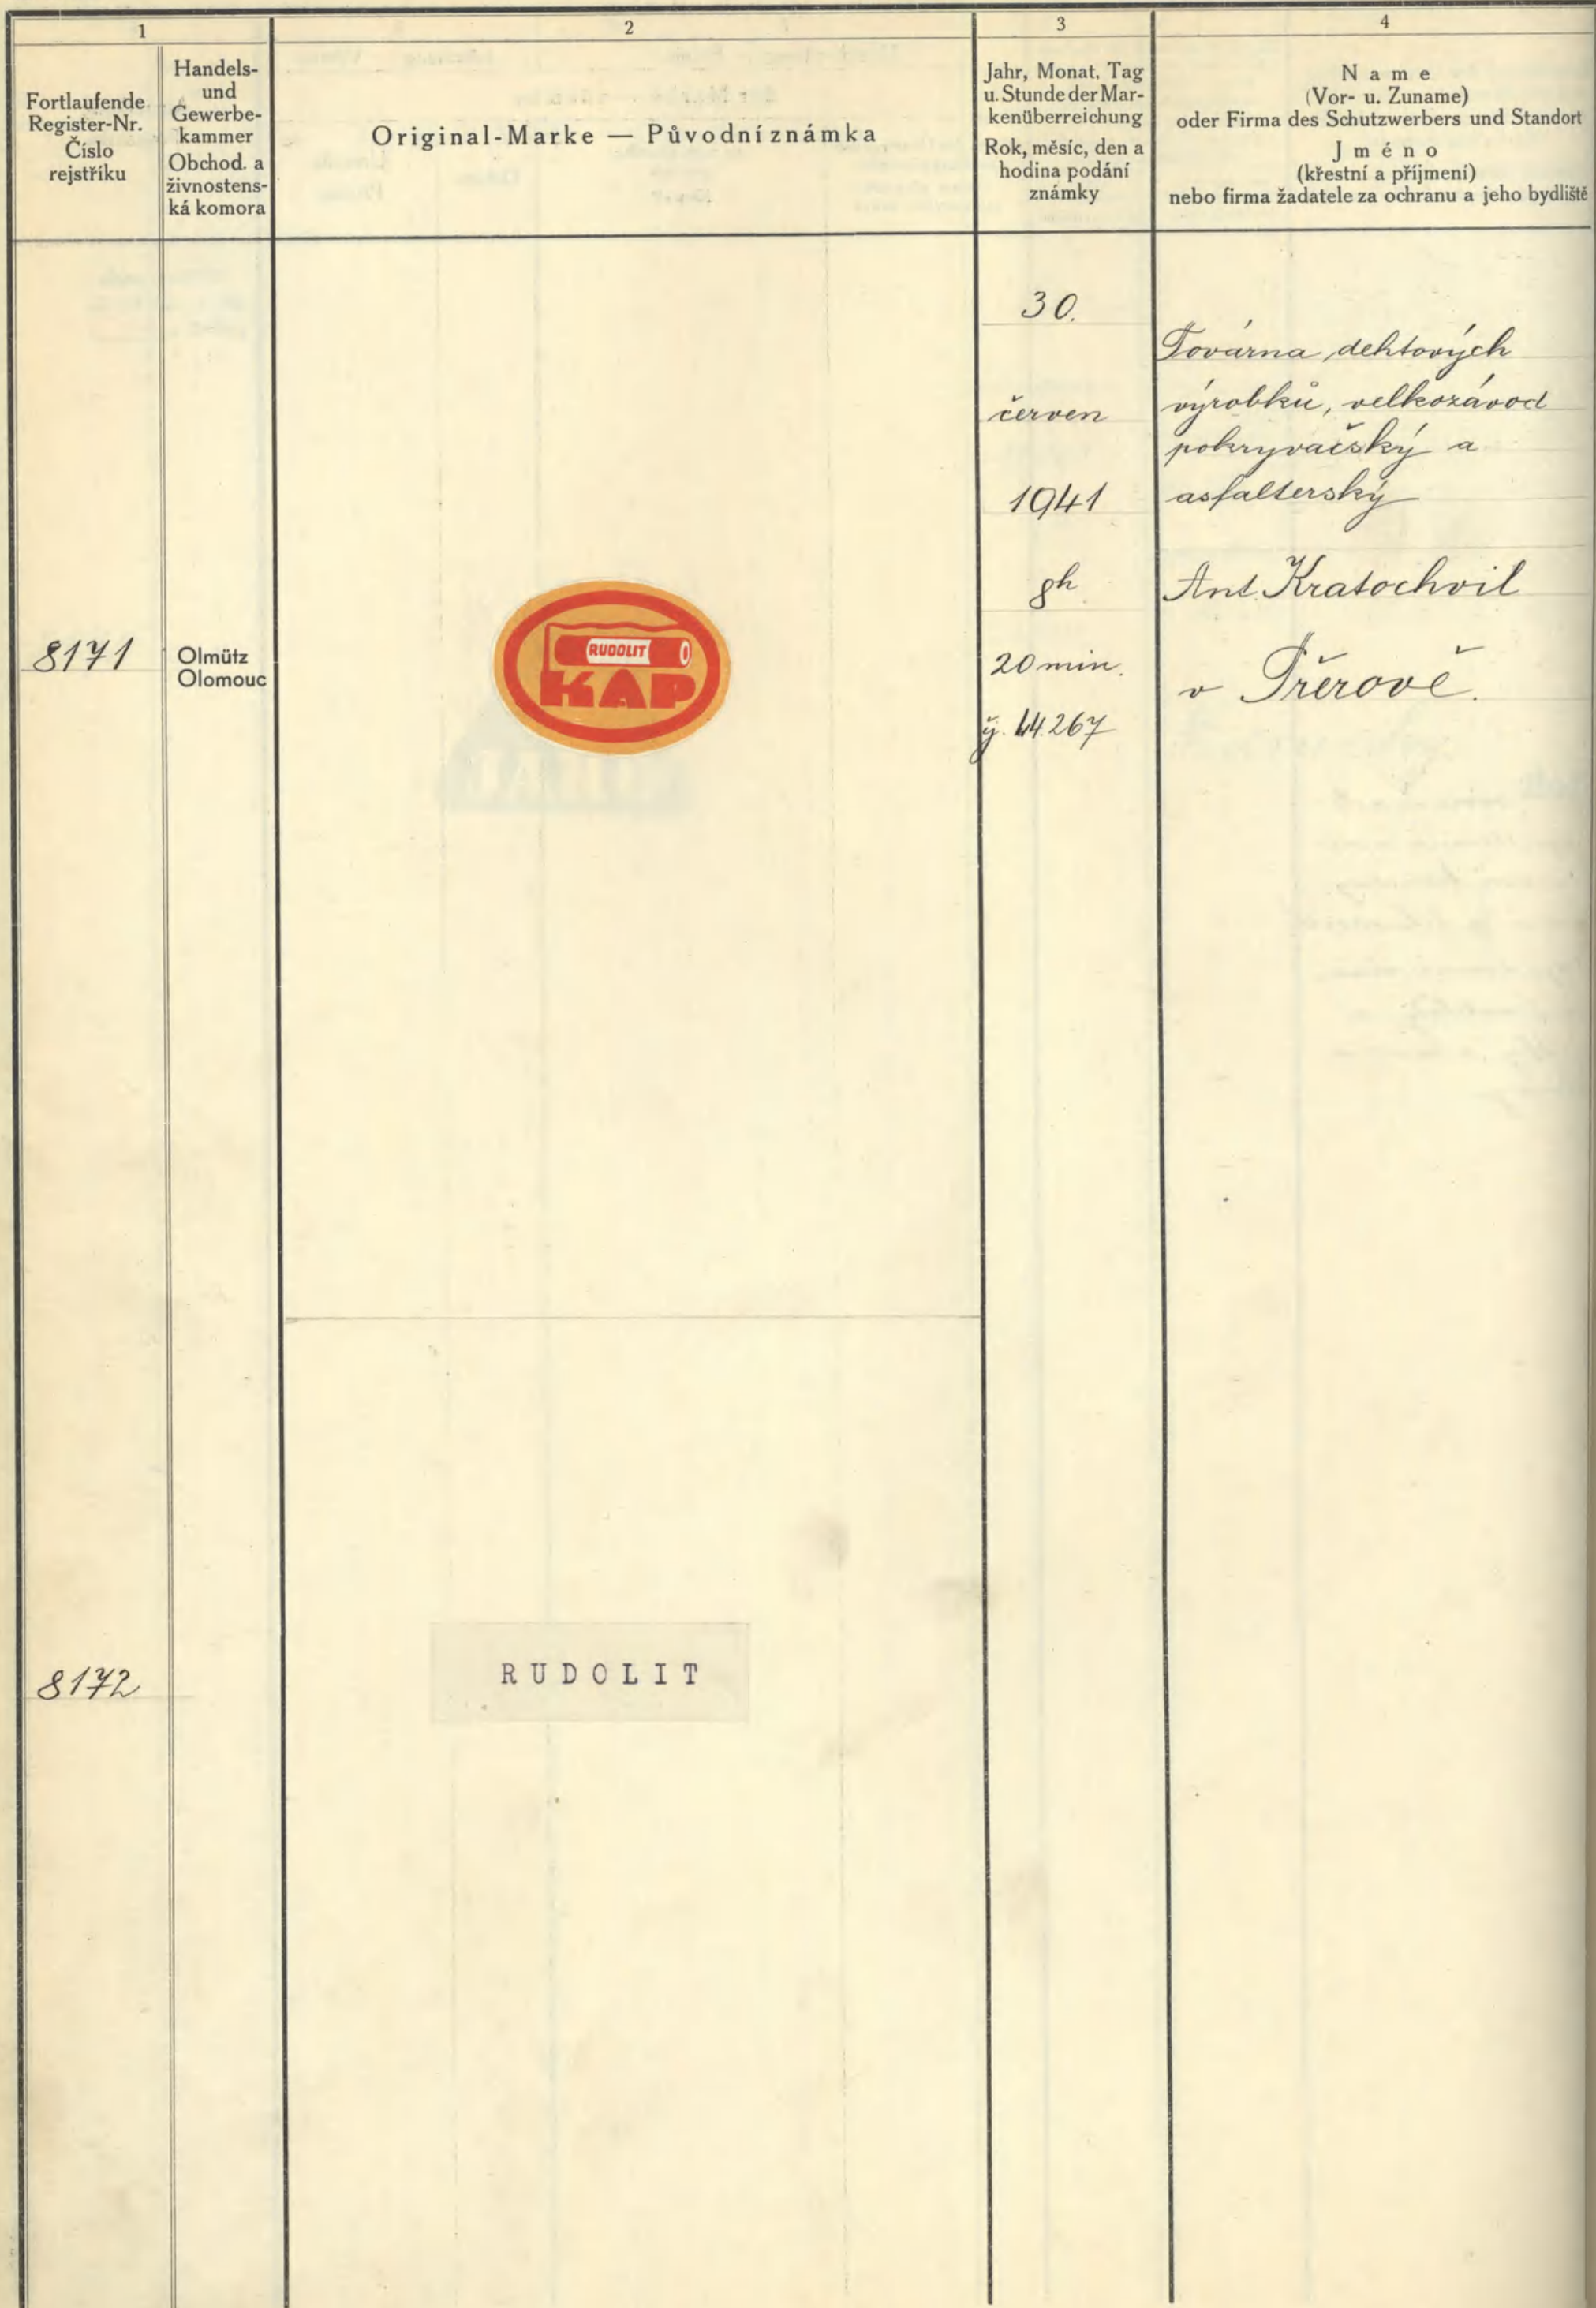 1
2
3
4
Fortlaufende
Register-Nr.
Číslo
rejstříku
Handels-
und
Gewerbe-
kammer
Obchod. a
živnostens-
ká komora
Original-Marke — Původní známka
Jahr, Monat, Tag
u. Stunde der Mar-
kenüberreichung
Rok, měsíc, den a
hodina podání
známky
Name
(Vor- u. Zuname)
oder Firma des Schutzwerbers und Standort
Jméno
(křestní a příjmení)
nebo firma žadatele za ochranu a jeho bydliště
8171
Olmütz
Olomouc
RUDOLIT
KAP
30.
červen
1941
8h
20 min.
44.267
Továrna dehtových
výrobků, velkozávod
pokryvačský a
asfalterský
Ant. Kratochvil
v Přerově.
8172
RUDOLIT